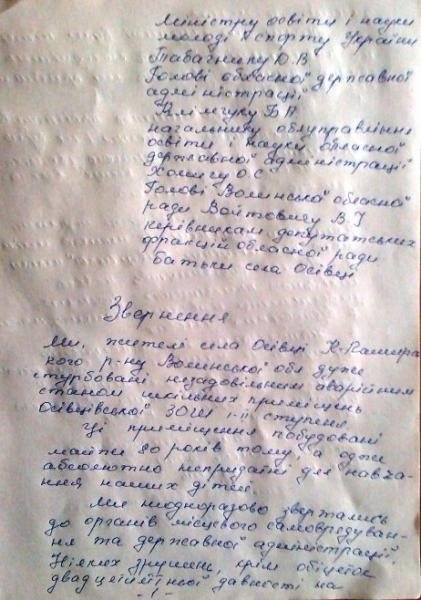 Міністру освіти і науки
молоді і спорту України
Табачнику Ю.В
Голові обласної державної
адміністрації
Клімчуку Б П
начальнику облуправління
освіти і науки обласної
державної адміністрації
О.С.
Голові Волинської обласної
ради Войтовичу В.І
керівникам депутатських
фракцій обласної ради
батьки села Осівці
Звернення
Ми, жителі села Осівці К-Кашира
кого р-ну Волинської обл дуже
стурбовані незадовільним аварійним
станом шкільних приміщень
Осівцівської ЗОШ І-ІІ ступеня.
Ці приміщення побудовані
майже 80 років тому, а отже
абсолютно непридатні для навча-
ння наших дітей.
Ми неодноразово звертались
до органів місцевого самоврядуван-
ня та державної адміністрації.
Ніяких зрушень, крім обіцянок
двадцятилітньої давності на
-1-